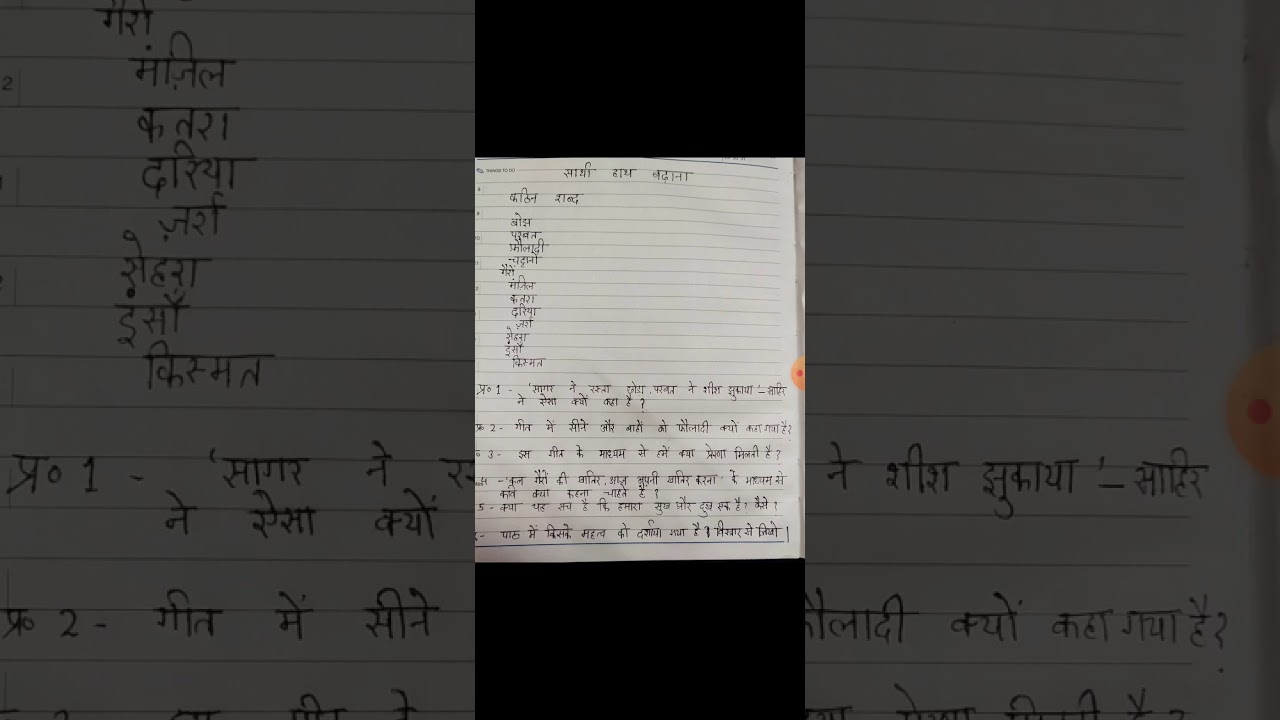 THINGS TO DO
साथी हाथ बढ़ाना
कठिन शब्द
बोझ
परबत
फ़ौलादी
चट्टानों
गैरों
मंज़िल
कतरा
दरिया
ज़र्रा
सेहरा
इंसाँ
किस्मत
प्र० 1 - 'सागर ने रस्ता छोड़ा परबत ने शीश झुकाया' - साहिर
ने ऐसा क्यों कहा है ?
प्र० 2 - गीत में सीने और बाहों को फौलादी क्यों कहा गया है?
3 - इस गीत के माध्यम से हमें क्या प्रेरणा मिलती है ?
- 'कल गैरों की खातिर, आज अपनी खातिर करना' के माध्यम से
कवि क्या कहना चाहते हैं ?
5 - क्या यह सच है कि हमारा सुख और दुख एक है? कैसे ?
- पाठ में किसके महत्व को दर्शाया गया है ? विस्तार से लिखो |